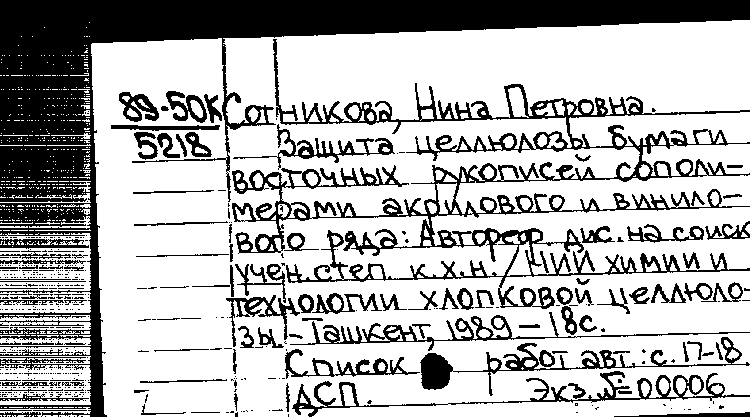 89-50К Сотникова, Нина Петровна.
5218 Защита целлюлозы бумаги
восточных рукописей сополи-
мерами акрилового и винило-
вого ряда: Автореф. дис. на соиск
учен. степ. к.х.н. / НИИ химии и
технологии хлопковой целлюло-
зы. - Ташкент, 1989 - 18с.
Список работ авт.: с. 17-18
ДСП. Экз. № 00006